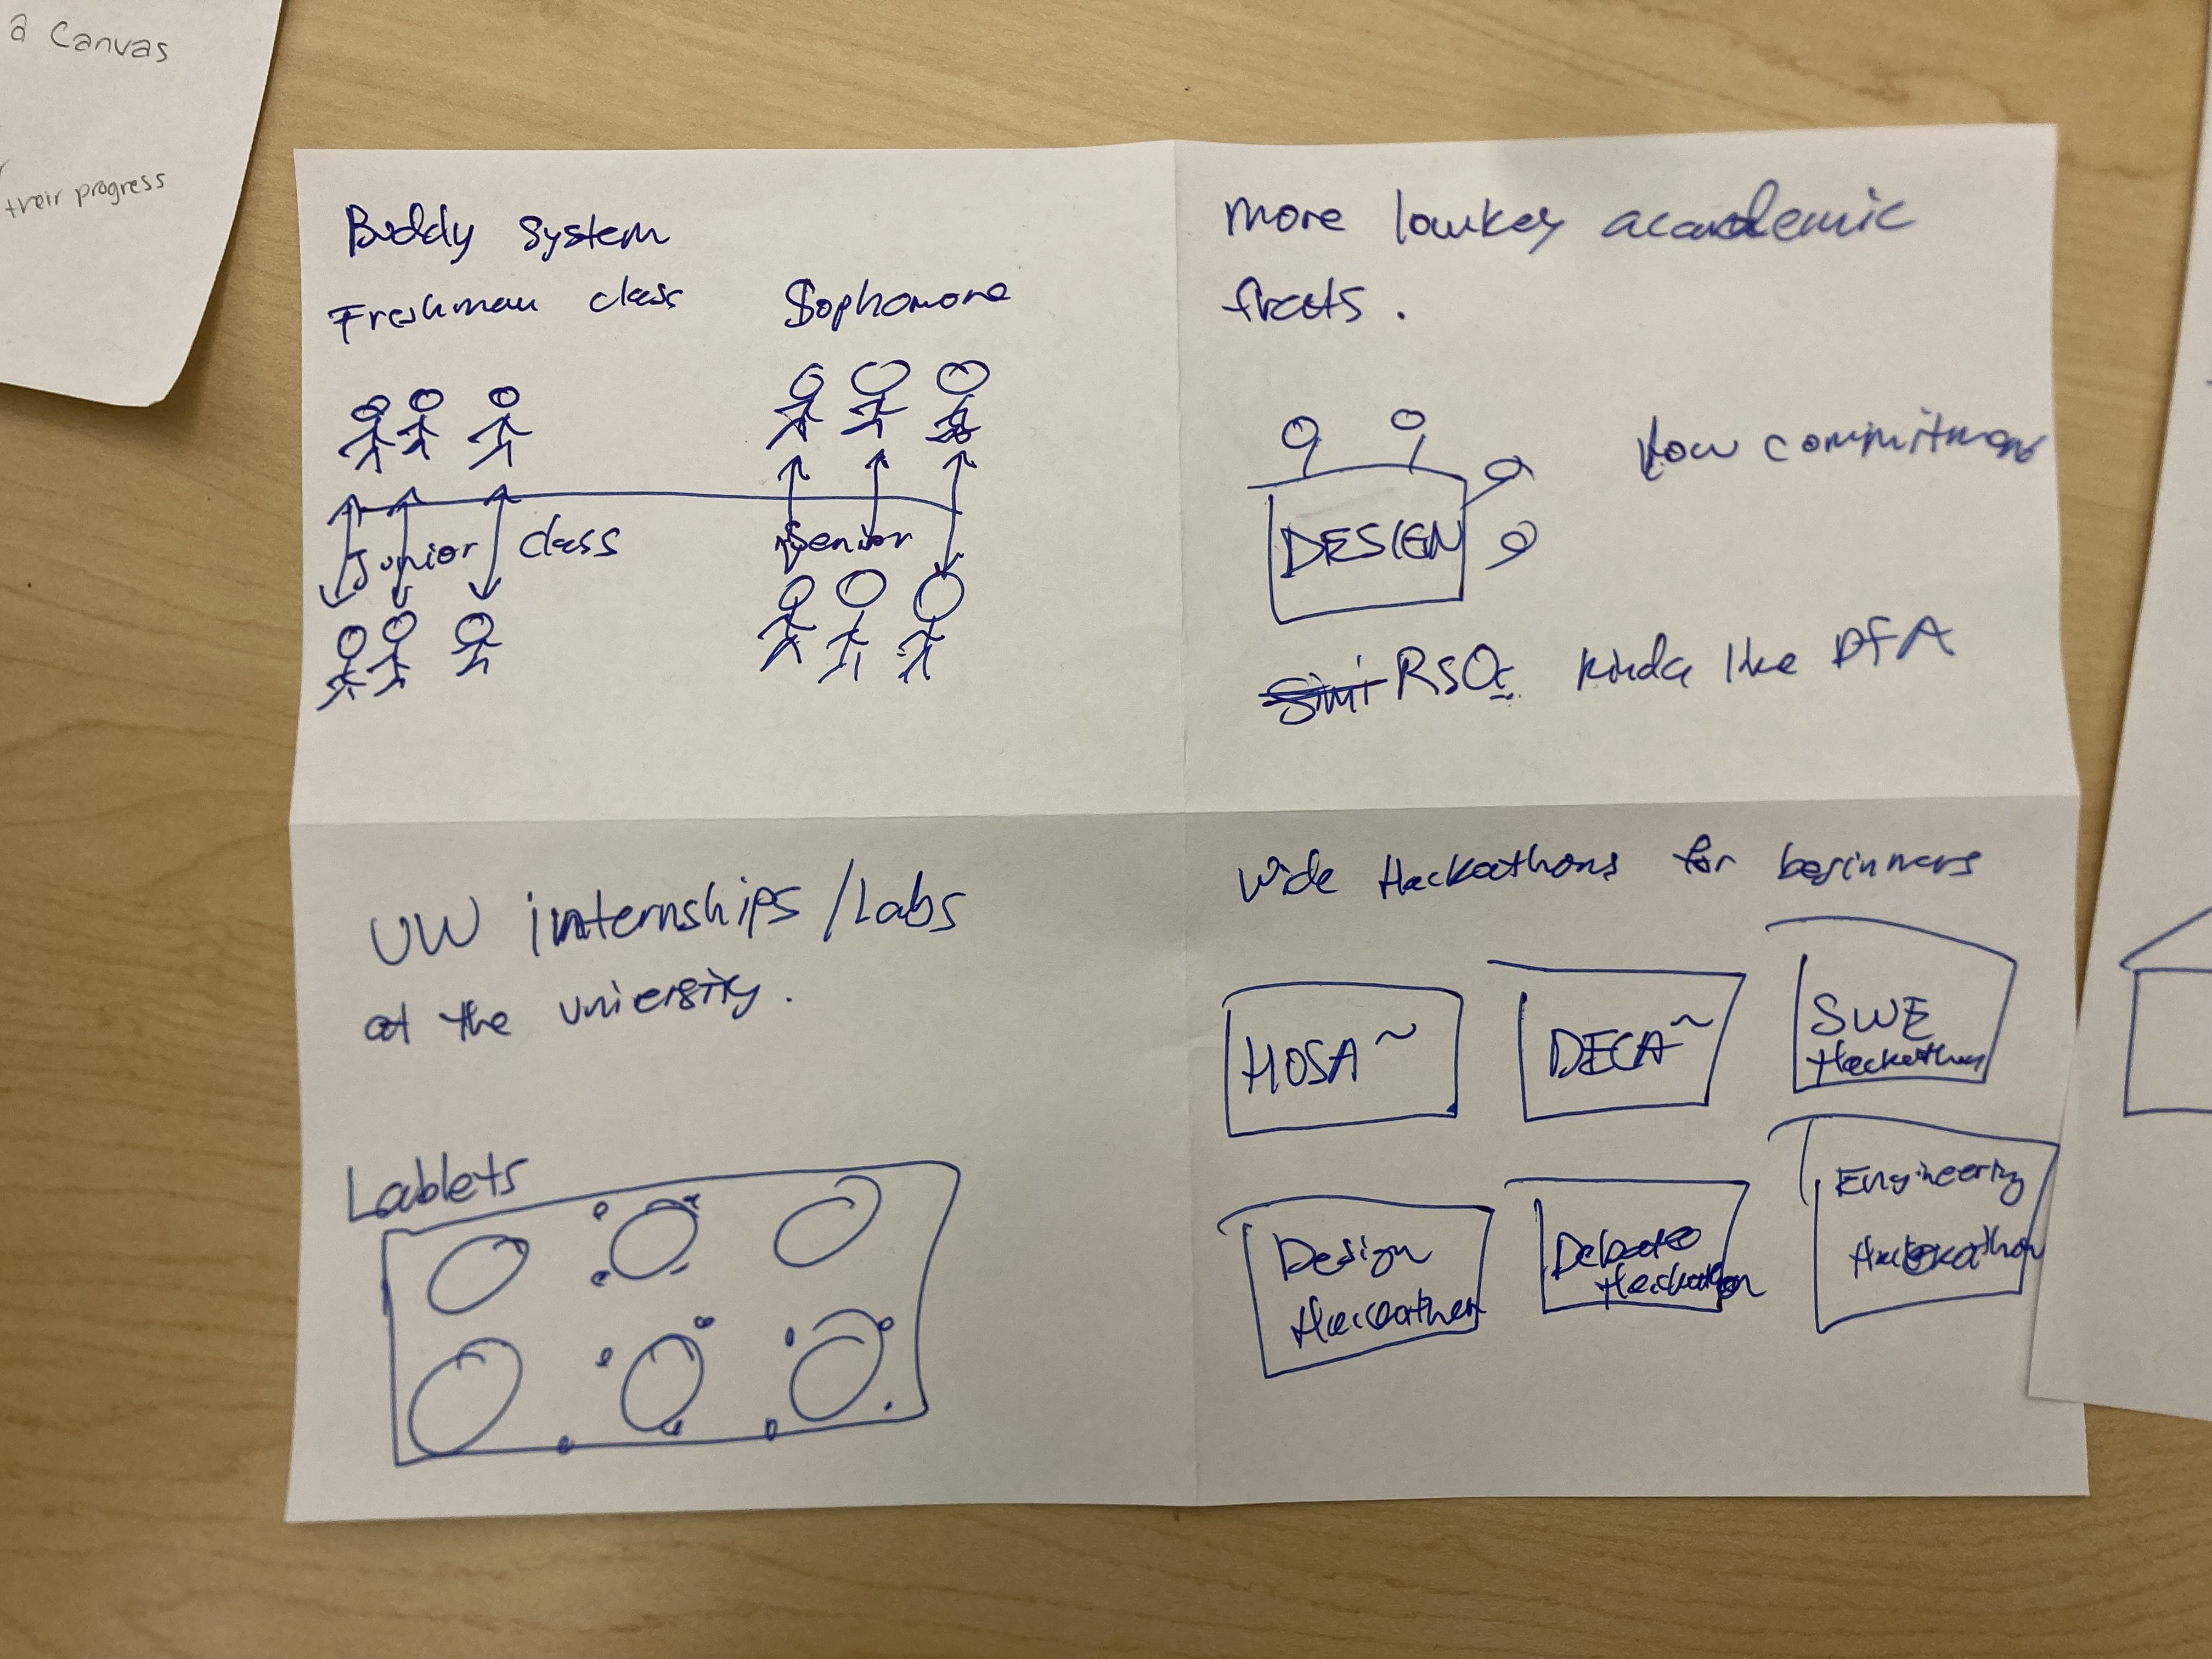 a Canvas
their progress
Buddy system
Freshman class Sophomore
Junior class Senior
more lowkey academic
frats.
low commitment
DESIGN
RSO: kinda like DFA
UW internships/Labs
at the university.
Lablets
Wide Hackathons for beginners
HOSA ~ DECA ~ SWE
Hackathon
Design
Hackathon
Debate
Hackathon
Engineering
Hackathon